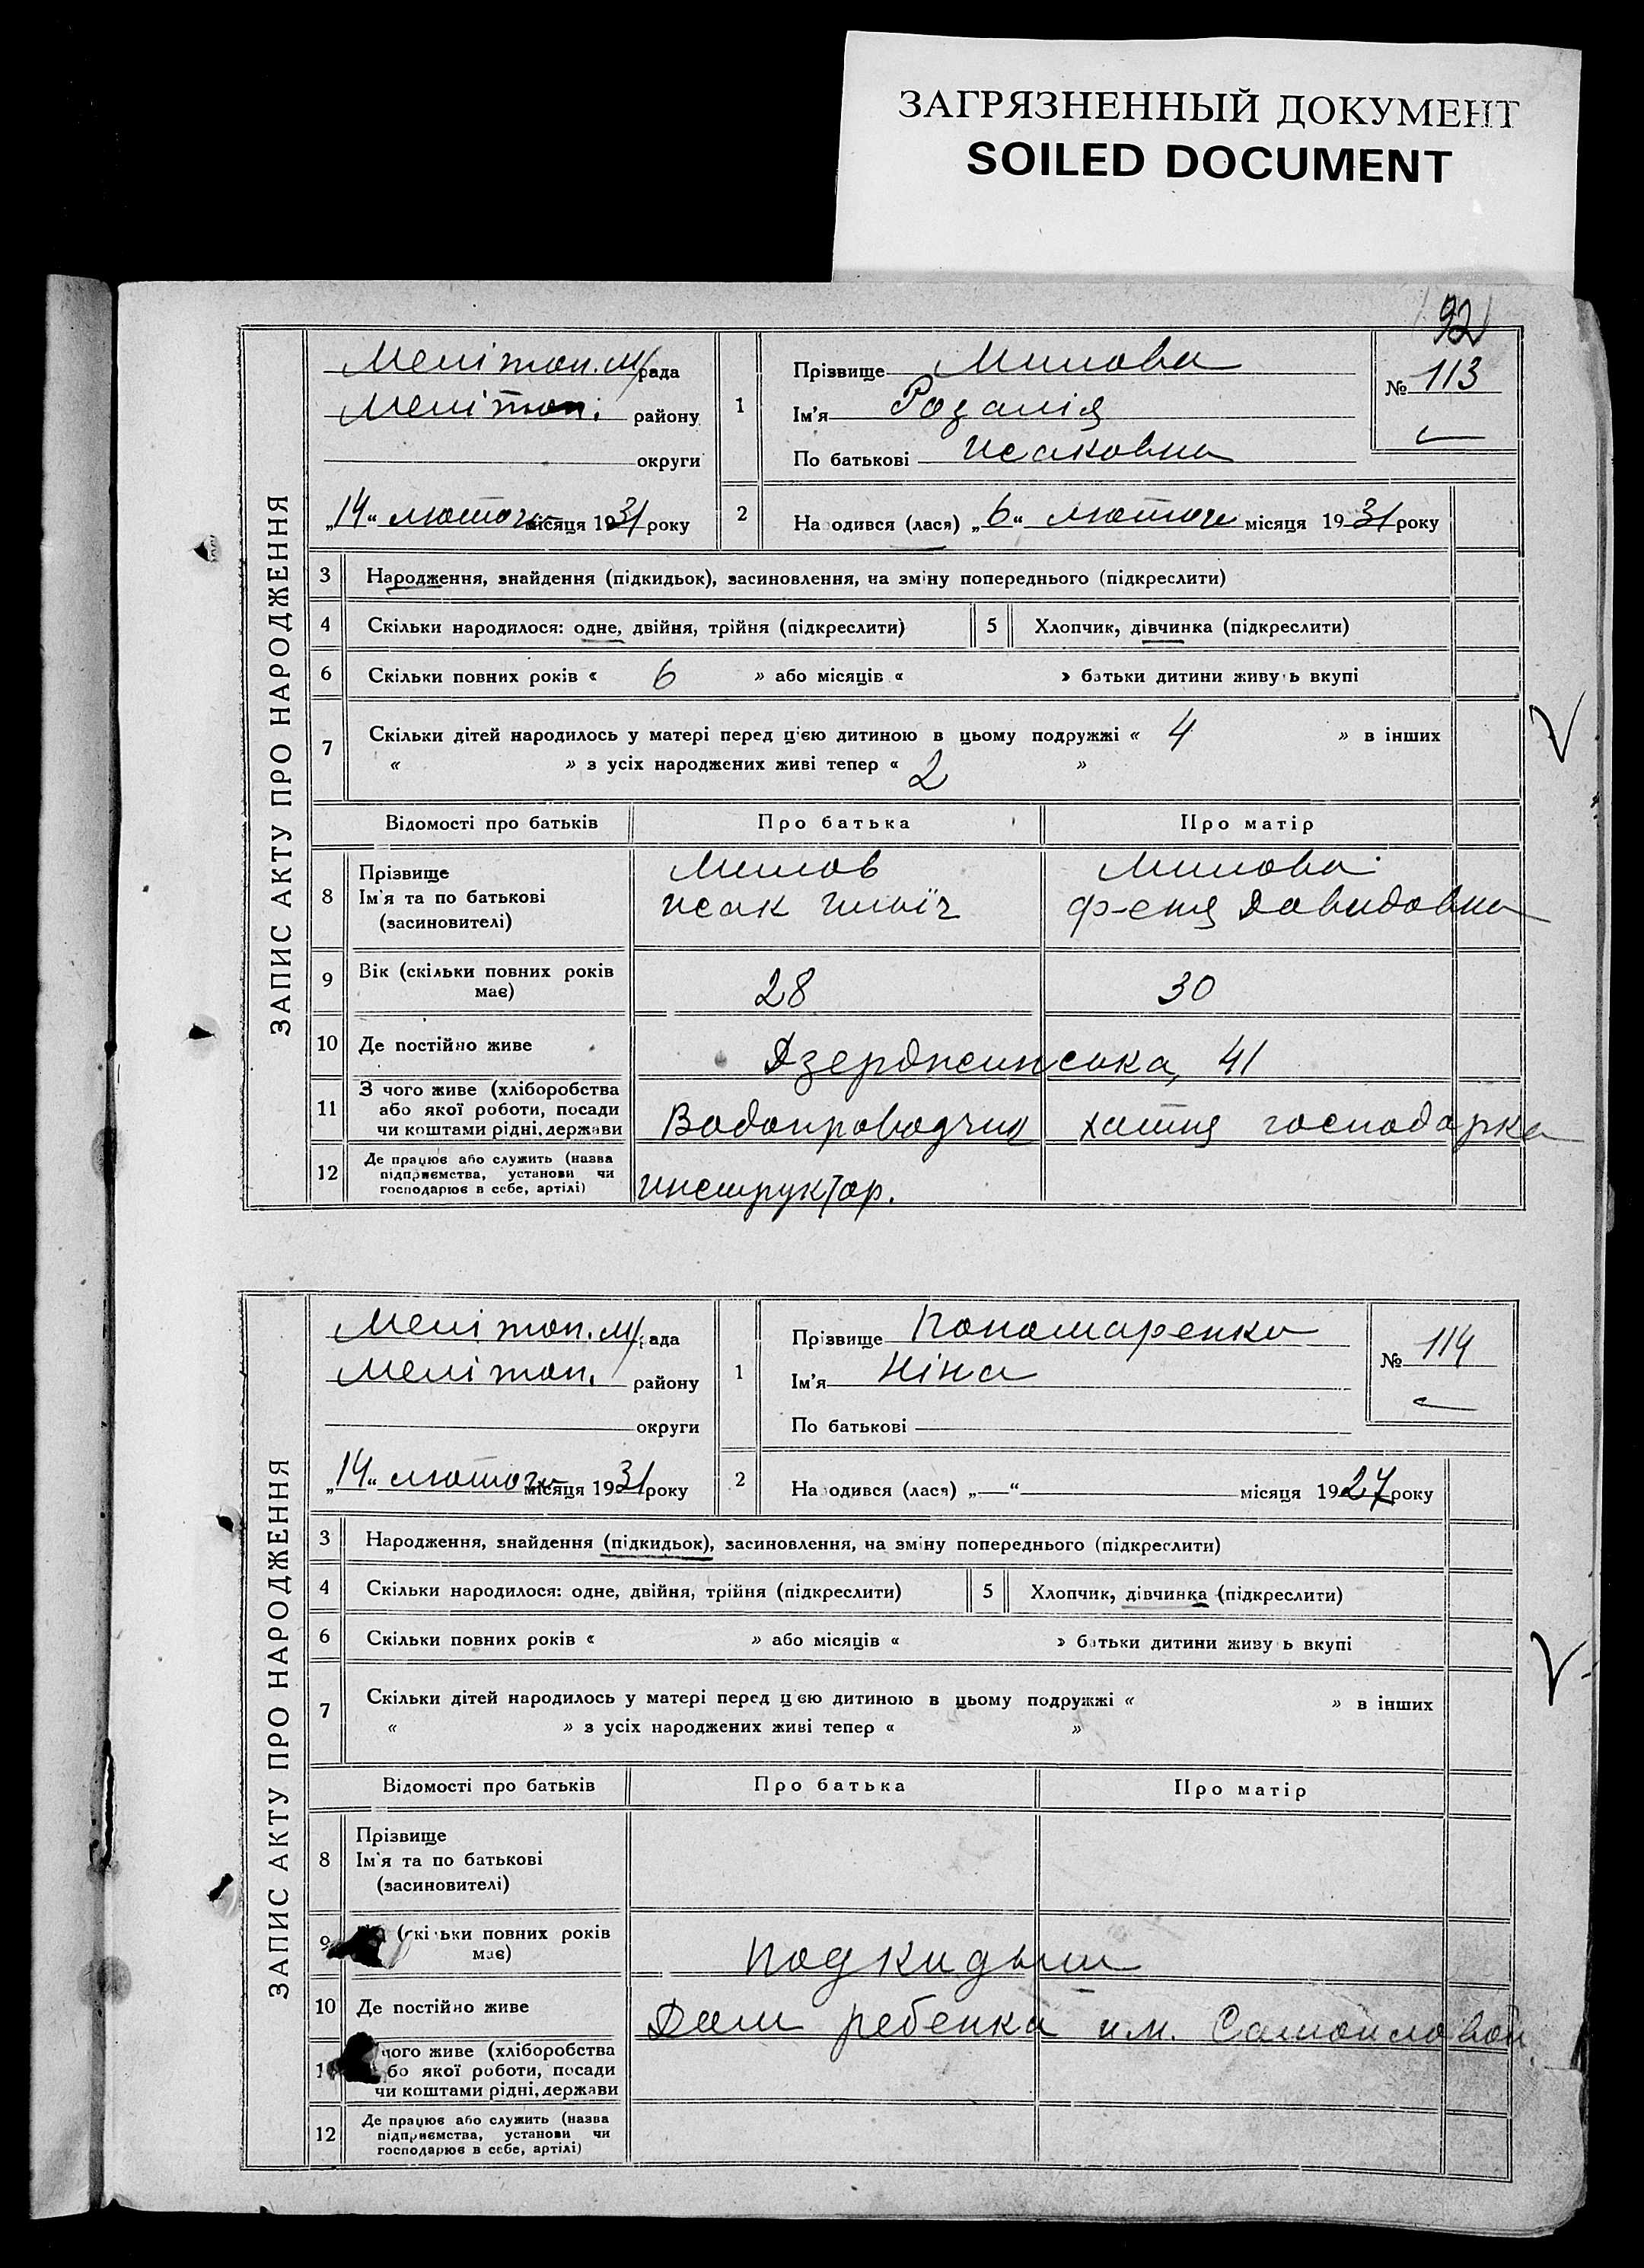 ЗАГРЯЗНЕННЫЙ ДОКУМЕНТ
SOILED DOCUMENT
92
ЗАПИС АКТУ ПРО НАРОДЖЕННЯ
Мелітоп. М/рада
Мелітоп. району
округи
„14“ лютого місяця 1931 року
1
Прізвище Милова
Ім'я Розалія
По батькові Исаковна
№ 113
2
На одився (лася) „6“ лютого місяця 1931 року
3 Народження, знайдення (підкидьок), засиновлення, на зміну попереднього (підкреслити)
4 Скільки народилося: одне, двійня, трійня (підкреслити) 5 Хлопчик, дівчинка (підкреслити)
6 Скільки повних років « 6 » або місяців « » батьки дитини живуть вкупі
7 Скільки дітей народилось у матері перед цією дитиною в цьому подружжі « 4 » в інших
« » з усіх народжених живі тепер « 2 »
Відомості про батьків Про батька Про матір
8 Прізвище Милов Милова
Ім'я та по батькові Исак Ильїч Ф-еня Давидовна
(засиновителі)
9 Вік (скільки повних років має) 28 30
10 Де постійно живе Дзержинська, 41
11 З чого живе (хліборобства
або якої роботи, посади
чи коштами рідні, держави Водопроводчик хатня господарка
12 Де працює або служить (назва
підприємства, установи чи
господарює в себе, артілі) инструктор.
ЗАПИС АКТУ ПРО НАРОДЖЕННЯ
Мелітоп. М/рада
Мелітоп. району
округи
„14“ лютого місяця 1931 року
1
Прізвище Пономаренко
Ім'я Ніна
По батькові
№ 114
2
На одився (лася) „—“ місяця 1927 року
3 Народження, знайдення (підкидьок), засиновлення, на зміну попереднього (підкреслити)
4 Скільки народилося: одне, двійня, трійня (підкреслити) 5 Хлопчик, дівчинка (підкреслити)
6 Скільки повних років « » або місяців « » батьки дитини живуть вкупі
7 Скільки дітей народилось у матері перед цією дитиною в цьому подружжі « » в інших
« » з усіх народжених живі тепер « »
Відомості про батьків Про батька Про матір
8 Прізвище
Ім'я та по батькові
(засиновителі)
9 (скільки повних років
має) подкидыш
10 Де постійно живе Дом ребенка им. Самойловой
чого живе (хліборобства
або якої роботи, посади
чи коштами рідні, держави
12 Де працює або служить (назва
підприємства, установи чи
господарює в себе, артілі)